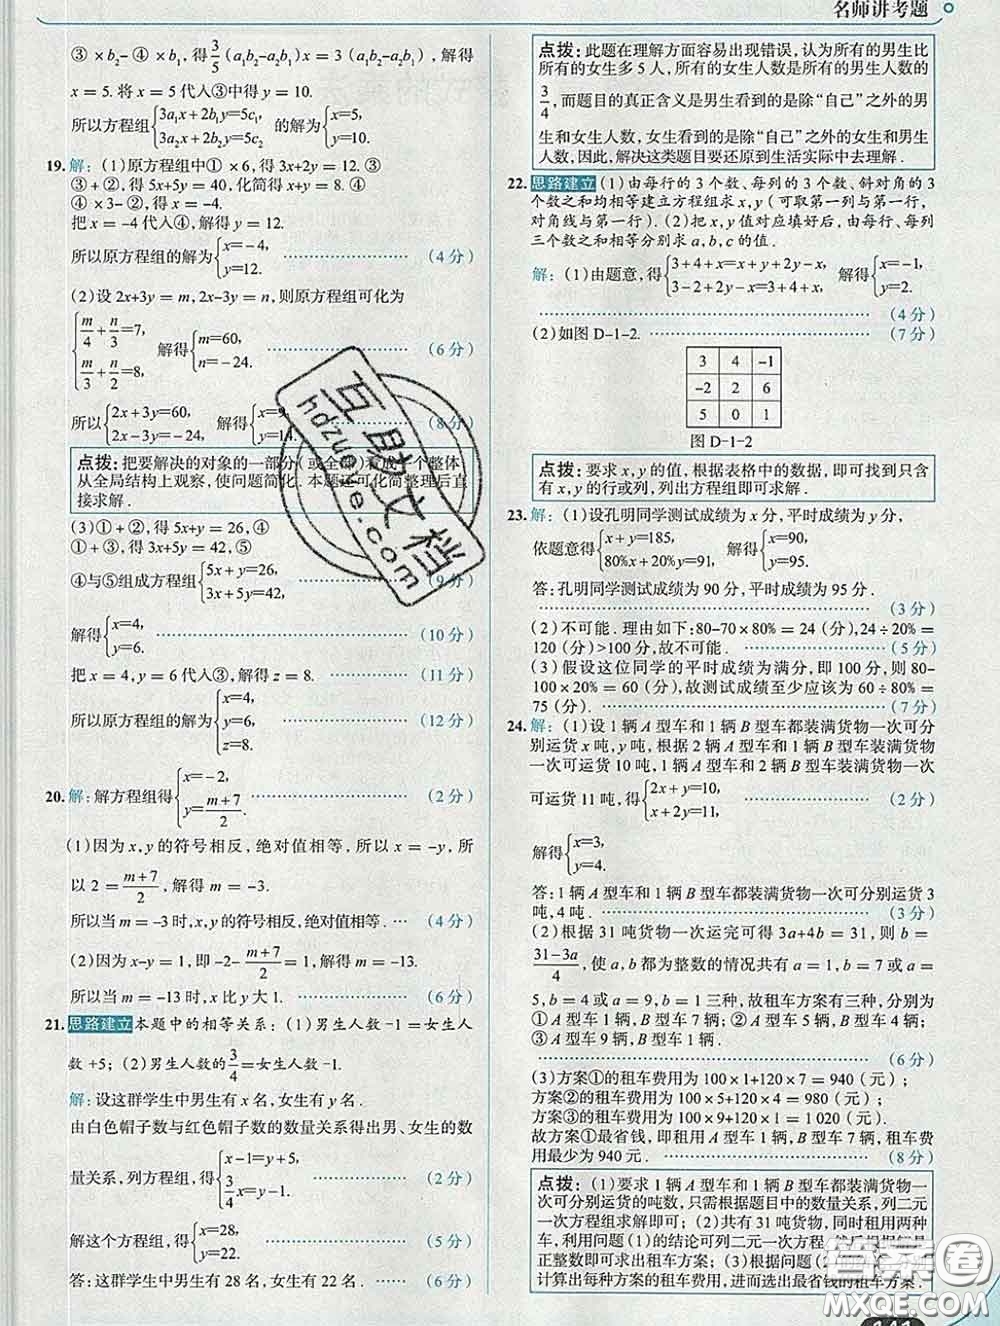 名师讲考题
③ ×b₂-④ ×b₁, 得 3/5 (a₁b₂-a₂b₁) x=3 (a₁b₂-a₂b₁), 解得
x=5. 将 x=5 代入③中得 y=10.
所以方程组{3a₁x+2b₁y=5c₁, 3a₂x+2b₂y=5c₂ 的解为{x=5, y=10.
19. 解: (1)原方程组中① ×6, 得 3x+2y=12. ③
③+②, 得 5x+5y=40, 化简得 x+y=8. ④
④ ×3-②, 得 x=-4.
把 x=-4 代入④, 解得 y=12.
所以原方程组的解为{x=-4, y=12. (4 分)
(2)设 2x+3y=m, 2x-3y=n, 则原方程组可化为
{m/4+n/3=7, m/3+n/2=8, 解得{m=60, n=-24. (6 分)
所以{2x+3y=60, 2x-3y=-24, 解得{x=9, y=14. (8 分)
点拨: 把要解决的对象的一部分(或全部)看成一个整体
从全局结构上观察, 使问题简化. 本题 可化简整理后直
接求解.
(3)①+②, 得 5x+y=26, ④
①+③, 得 3x+5y=42, ⑤
④与⑤组成方程组{5x+y=26, 3x+5y=42, (9 分)
解得{x=4, y=6. (10 分)
把 x=4, y=6 代入③, 解得 z=8. (11 分)
所以原方程组的解为{x=4, y=6, z=8. (12 分)
20. 解: 解方程组得{x=-2, y=(m+7)/2. (2 分)
(1)因为 x, y 的符号相反, 绝对值相等, 所以 x=-y, 所
以 2=(m+7)/2, 解得 m=-3.
所以当 m=-3 时, x, y 的符号相反, 绝对值相等. (4 分)
(2)因为 x-y=1, 即 -2-(m+7)/2=1, 解得 m=-13.
所以当 m=-13 时, x 比 y 大 1. (6 分)
21. 思路建立 本题中的相等关系: (1)男生人数 -1=女生人
数 +5; (2)男生人数的3/4=女生人数 -1.
解: 设这群学生中男生有 x 名, 女生有 y 名.
由白色帽子数与红色帽子数的数量关系得出男、女生的数
量关系, 列方程组, 得{x-1=y+5, 3/4x=y-1. (2 分)
解这个方程组, 得{x=28, y=22. (5 分)
答: 这群学生中男生有 28 名, 女生有 22 名. (6 分)
点拨: 此题在理解方面容易出现错误, 认为所有的男生比
所有的女生多 5 人, 所有的女生人数是所有的男生人数的
3/4, 而题目的真正含义是男生看到的是除“自己”之外的男
生和女生人数, 女生看到的是除“自己”之外的女生和男生
人数, 因此, 解决这类题目要还原到生活实际中去理解.
22. 思路建立 (1)由每行的 3 个数、每列的 3 个数、斜对角的 3
个数之和均相等建立方程组求 x, y (可取第一列与第一行,
对角线与第一行). (2)把 x, y 值对应填好后, 由每行、每列
三个数之和相等分别求 a, b, c 的值.
解: (1)由题意, 得{3+4+x=x+y+2y-x, 3-2+2y-x=3+4+x, 解得{x=-1, y=2.
(4 分)
(2)如图 D-1-2. (7 分)
3 4 -1
-2 2 6
5 0 1
图 D-1-2
点拨: 要求 x, y 的值, 根据表格中的数据, 即可找到只含
有 x, y 的行或列, 列出方程组即可求解.
23. 解: (1)设孔明同学测试成绩为 x 分, 平时成绩为 y 分,
依题意得{x+y=185, 80%x+20%y=91, 解得{x=90, y=95.
答: 孔明同学测试成绩为 90 分, 平时成绩为 95 分.
(3 分)
(2)不可能. 理由如下: 80-70×80%=24 (分), 24÷20%=
120 (分)>100 分, 故不可能. (5 分)
(3)假设这位同学的平时成绩为满分, 即 100 分, 则 80-
100×20%=60 (分), 故测试成绩至少应该为 60÷80%=
75 (分). (7 分)
24. 解: (1)设 1 辆 A 型车和 1 辆 B 型车都装满货物一次可分
别运货 x 吨, y 吨, 根据 2 辆 A 型车和 1 辆 B 型车装满货物
一次可运货 10 吨, 1 辆 A 型车和 2 辆 B 型车装满货物一次
可运货 11 吨, 得{2x+y=10, x+2y=11. (2 分)
解得{x=3, y=4.
答: 1 辆 A 型车和 1 辆 B 型车都装满货物一次可分别运货 3
吨, 4 吨. (3 分)
(2)根据 31 吨货物一次运完可得 3a+4b=31, 则 b=
(31-3a)/4, 使 a, b 都为整数的情况共有 a=1, b=7 或 a=
5, b=4 或 a=9, b=1 三种, 故租车方案有三种, 分别为
①A 型车 1 辆, B 型车 7 辆; ②A 型车 5 辆, B 型车 4 辆;
③A 型车 9 辆, B 型车 1 辆.
(6 分)
(3)方案①的租车费用为 100×1+120×7=940 (元);
方案②的租车费用为 100×5+120×4=980 (元);
方案③的租车费用为 100×9+120×1=1 020 (元).
故方案①最省钱, 即租用 A 型车 1 辆, B 型车 7 辆, 租车费
用最少为 940 元. (8 分)
点拨: (1)要求 1 辆 A 型车和 1 辆 B 型车都装满货物一
次可分别运货的吨数, 只需根据题目中的数量关系, 列二元
一次方程组求解即可; (2)共有 31 吨货物, 同时租用两种
车, 利用问题 (1) 的结论可列二元一次方程, 然后根据解是
正整数即可求出租车方案; (3)根据问题 (2)
计算出每种方案的租车费用, 进而选出最省钱的租车方案.
141
互助文档
hdzuoke.com
答案圈
MXQE.COM